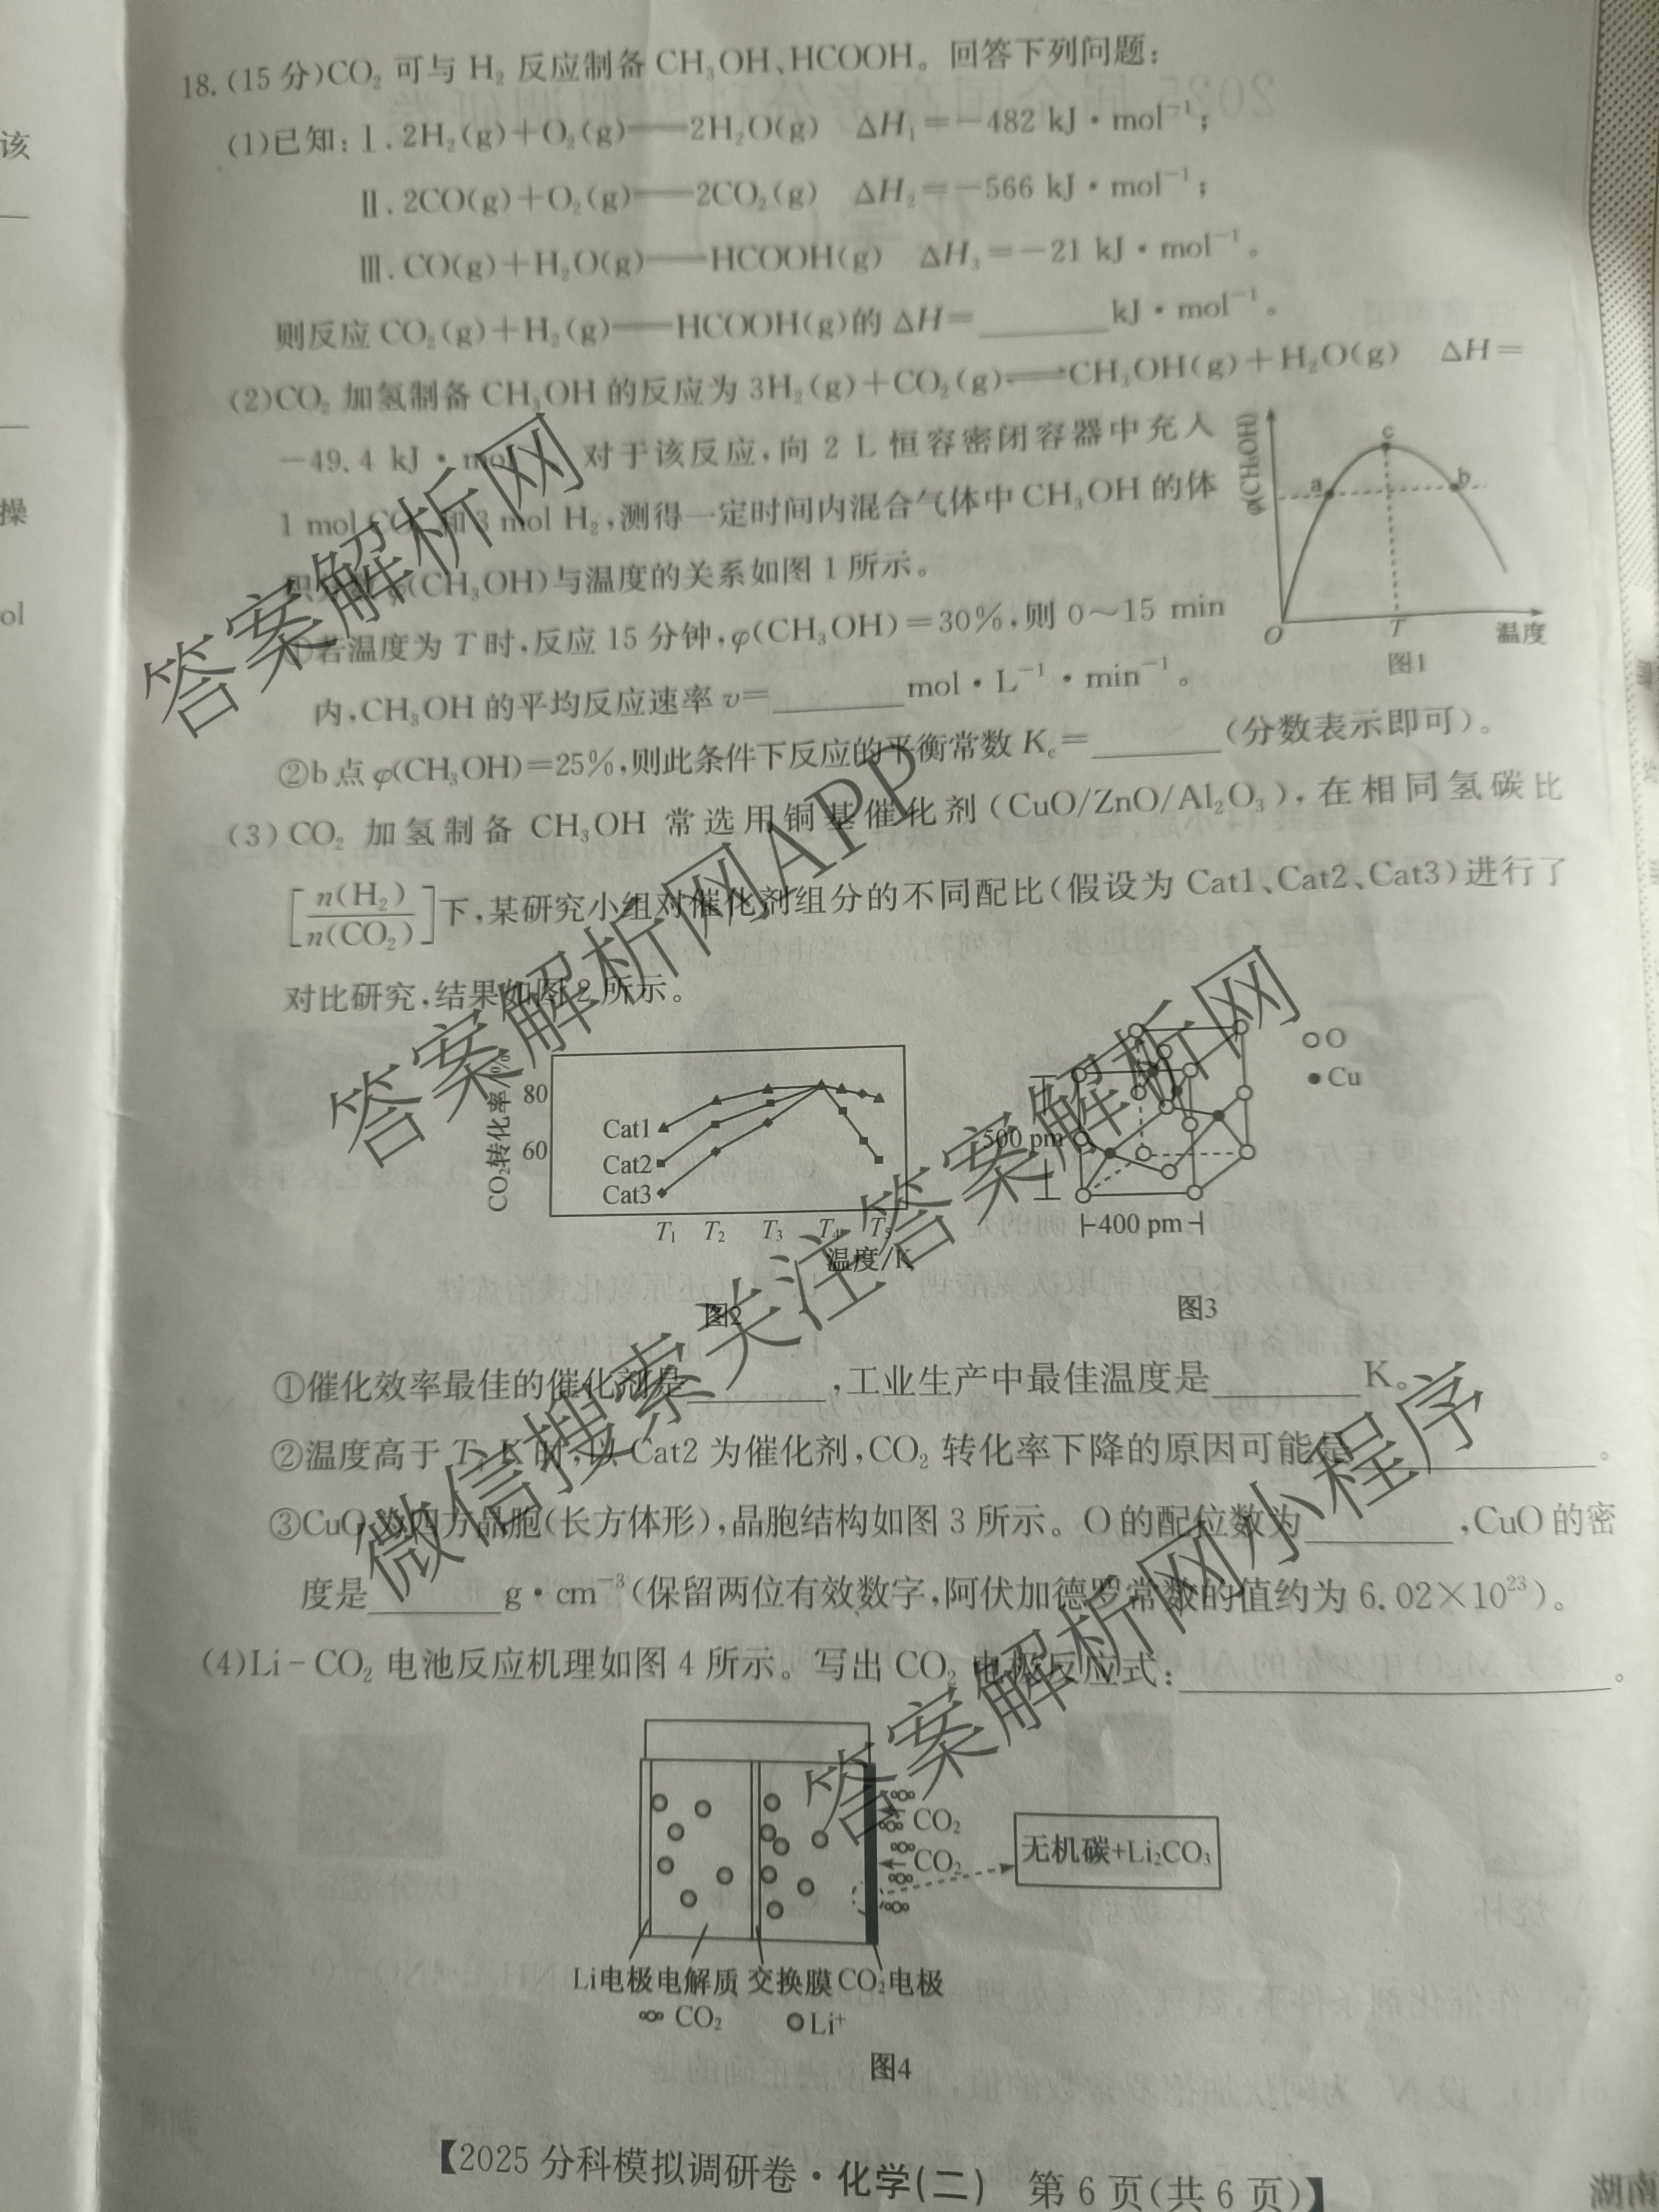 18.(15分)CO₂ 可与 H₂ 反应制备 CH₃OH、HCOOH。回答下列问题:
(1)已知:Ⅰ.2H₂(g)+O₂(g)══2H₂O(g) ΔH₁=-482 kJ·mol⁻¹;
Ⅱ.2CO(g)+O₂(g)══2CO₂(g) ΔH₂=-566 kJ·mol⁻¹;
Ⅲ.CO(g)+H₂O(g)══HCOOH(g) ΔH₃=-21 kJ·mol⁻¹。
则反应 CO₂(g)+H₂(g)══HCOOH(g)的 ΔH=______kJ·mol⁻¹。
(2)CO₂ 加氢制备 CH₃OH 的反应为 3H₂(g)+CO₂(g)⇌CH₃OH(g)+H₂O(g) ΔH=
-49.4 kJ·mol 对于该反应,向 2 L 恒容密闭容器中充入
1 mol CO₂ 和 3 mol H₂,测得一定时间内混合气体中 CH₃OH 的体
φ(CH₃OH)与温度的关系如图 1 所示。
①若温度为 T 时,反应 15 分钟,φ(CH₃OH)=30%,则 0~15 min
内,CH₃OH 的平均反应速率 v=______mol·L⁻¹·min⁻¹。
②b 点 φ(CH₃OH)=25%,则此条件下反应的平衡常数 K꜀=______(分数表示即可)。
φ(CH₃OH)
a
c
b
O
T
温度
图1
(3)CO₂ 加氢制备 CH₃OH 常选用铜基催化剂(CuO/ZnO/Al₂O₃),在相同氢碳比
[n(H₂)/n(CO₂)]下,某研究小组对催化剂组分的不同配比(假设为 Cat1、Cat2、Cat3)进行了
对比研究,结果如图 2 所示。
CO₂转化率/%
80
60
Cat1
Cat2
Cat3
T₁ T₂ T₃ T₄ T₅
温度/K
图2
O
Cu
500 pm
400 pm
图3
①催化效率最佳的催化剂是______,工业生产中最佳温度是______K。
②温度高于 T K 时,以 Cat2 为催化剂,CO₂ 转化率下降的原因可能是______。
③CuO 为四方晶胞(长方体形),晶胞结构如图 3 所示。O 的配位数为______,CuO 的密
度是______g·cm⁻³(保留两位有效数字,阿伏加德罗常数的值约为 6.02×10²³)。
(4)Li-CO₂ 电池反应机理如图 4 所示。写出 CO₂ 电极反应式:______。
CO₂
CO₂
无机碳+Li₂CO₃
Li电极 电解质 交换膜 CO₂电极
CO₂ Li⁺
图4
【2025 分科模拟调研卷·化学(二) 第 6 页(共 6 页)】
该
操
ol
答案解析网
答案解析网APP
微信搜索关注答案解析网
答案解析网小程序